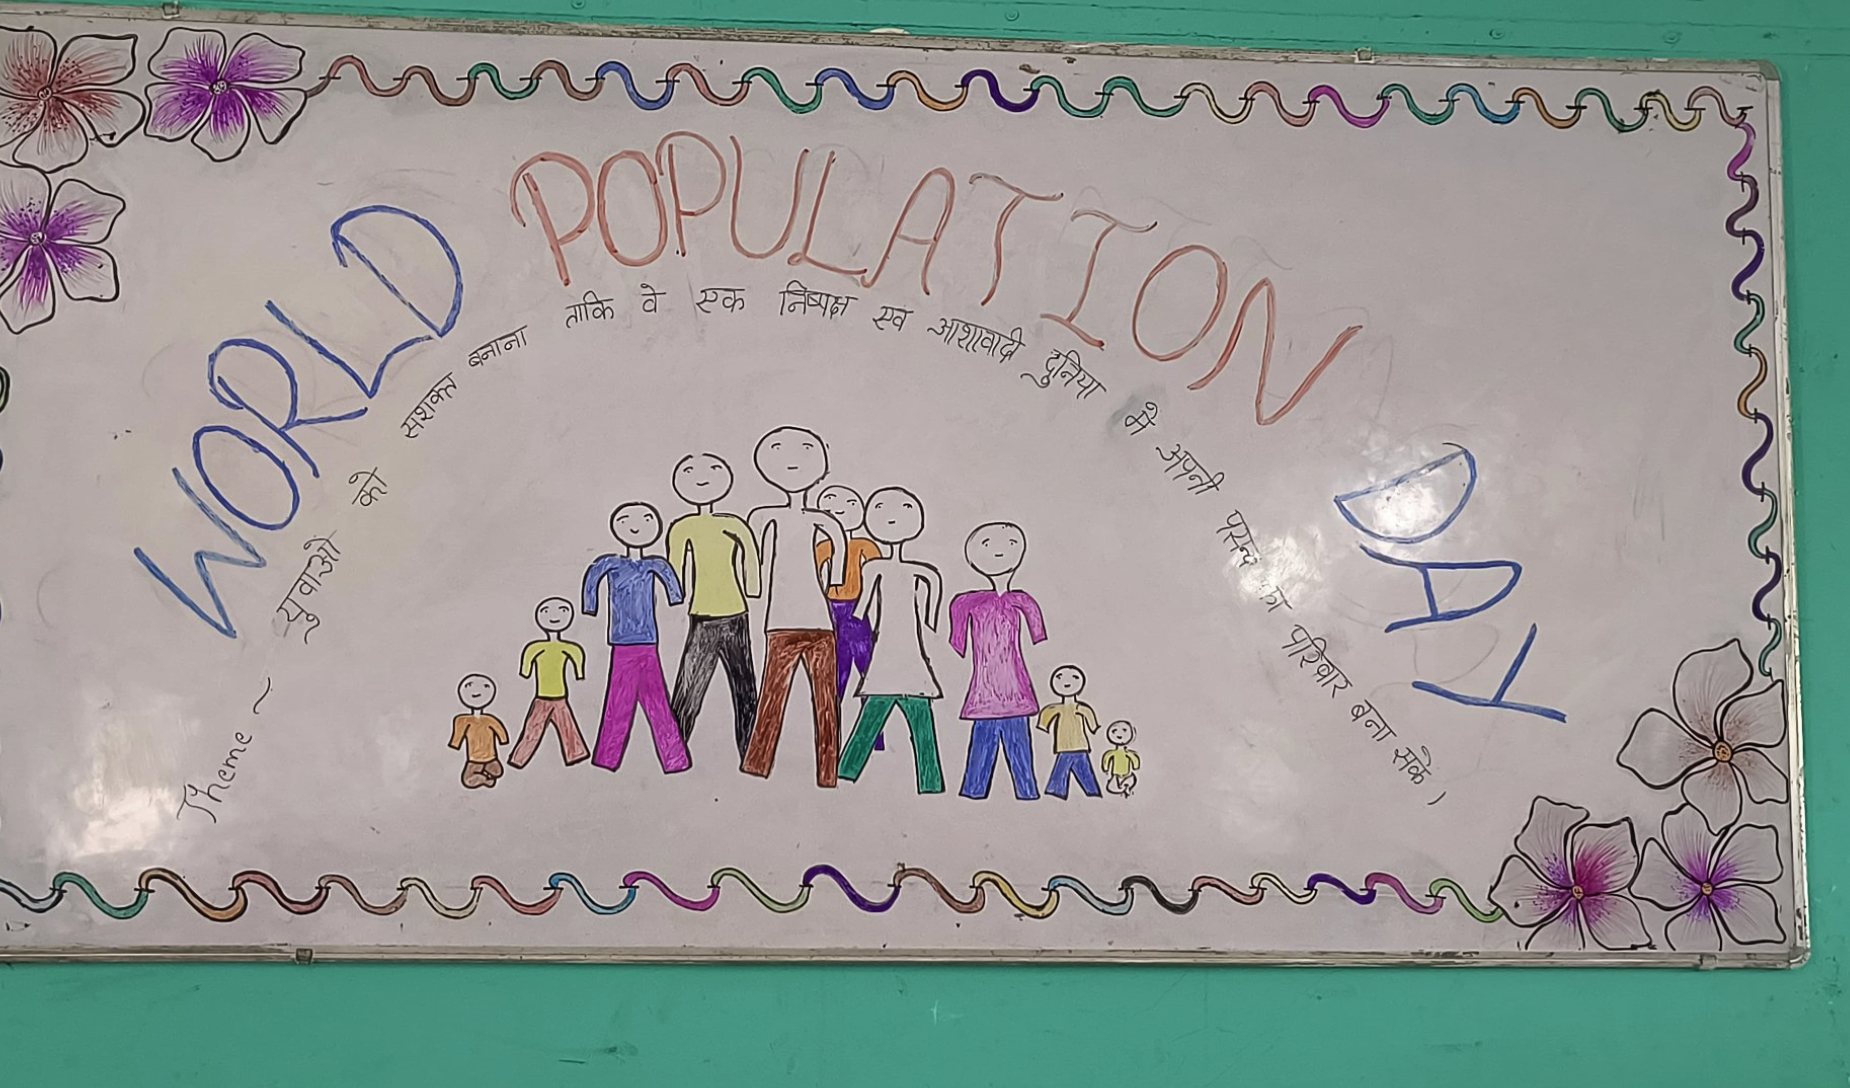 WORLD POPULATION DAY
Theme ~ युवाओ को सशक्त बनाना ताकि वे एक निष्पक्ष एव आशावादी दुनिया में अपनी पसन्द का परिवार बना सकें ।